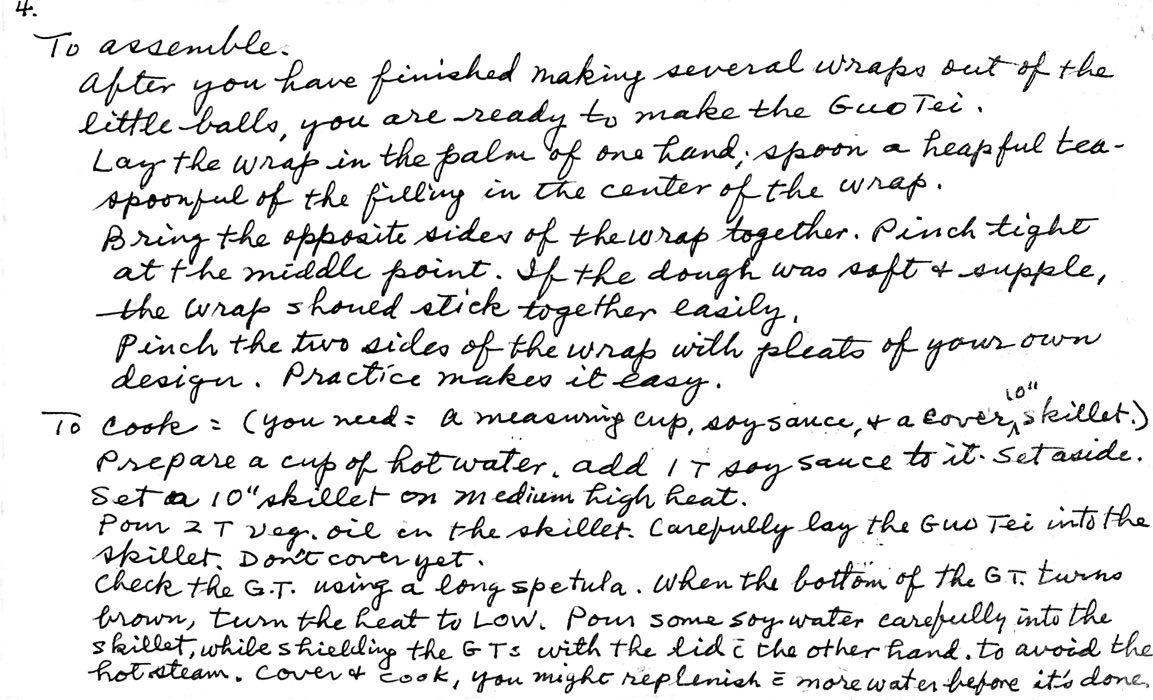 4.
To assemble.
After you have finished making several wraps out of the
little balls, you are ready to make the Guo Tei.
Lay the wrap in the palm of one hand; spoon a heapful tea-
spoonful of the filling in the center of the wrap.
Bring the opposite sides of the wrap together. Pinch tight
at the middle point. If the dough was soft & supple,
the wrap should stick together easily.
Pinch the two sides of the wrap with pleats of your own
design. Practice makes it easy.
10"
To cook: (you need: a measuring cup, soy sauce, & a cover, skillet.)
Prepare a cup of hot water, add 1 T soy sauce to it. Set aside.
Set a 10" skillet on medium high heat.
Pour 2 T veg. oil in the skillet. Carefully lay the Guo Tei into the
skillet. Don't cover yet.
Check the G.T. using a long spetula. When the bottom of the G.T. turns
brown, turn the heat to LOW. Pour some soy-water carefully into the
skillet, while shielding the GTs with the lid c̄ the other hand. to avoid the
hot steam. Cover & cook, you might replenish c̄ more water before it's done.